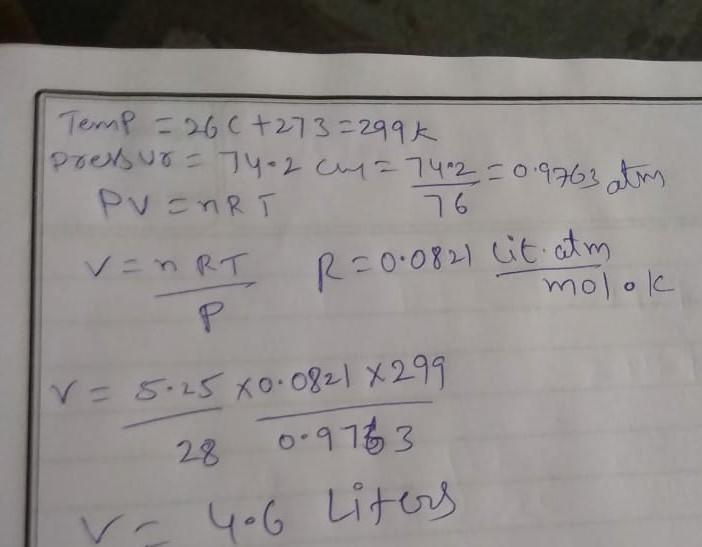 Temp = 26C + 273 = 299k
pressur = 74.2 cm = 74.2/76 = 0.9763 atm
PV = nRT
V = nRT/P R = 0.0821 Lit.atm/mol.k
V = 5.25/28 x 0.0821 x 299/0.9763
V = 4.6 Liters